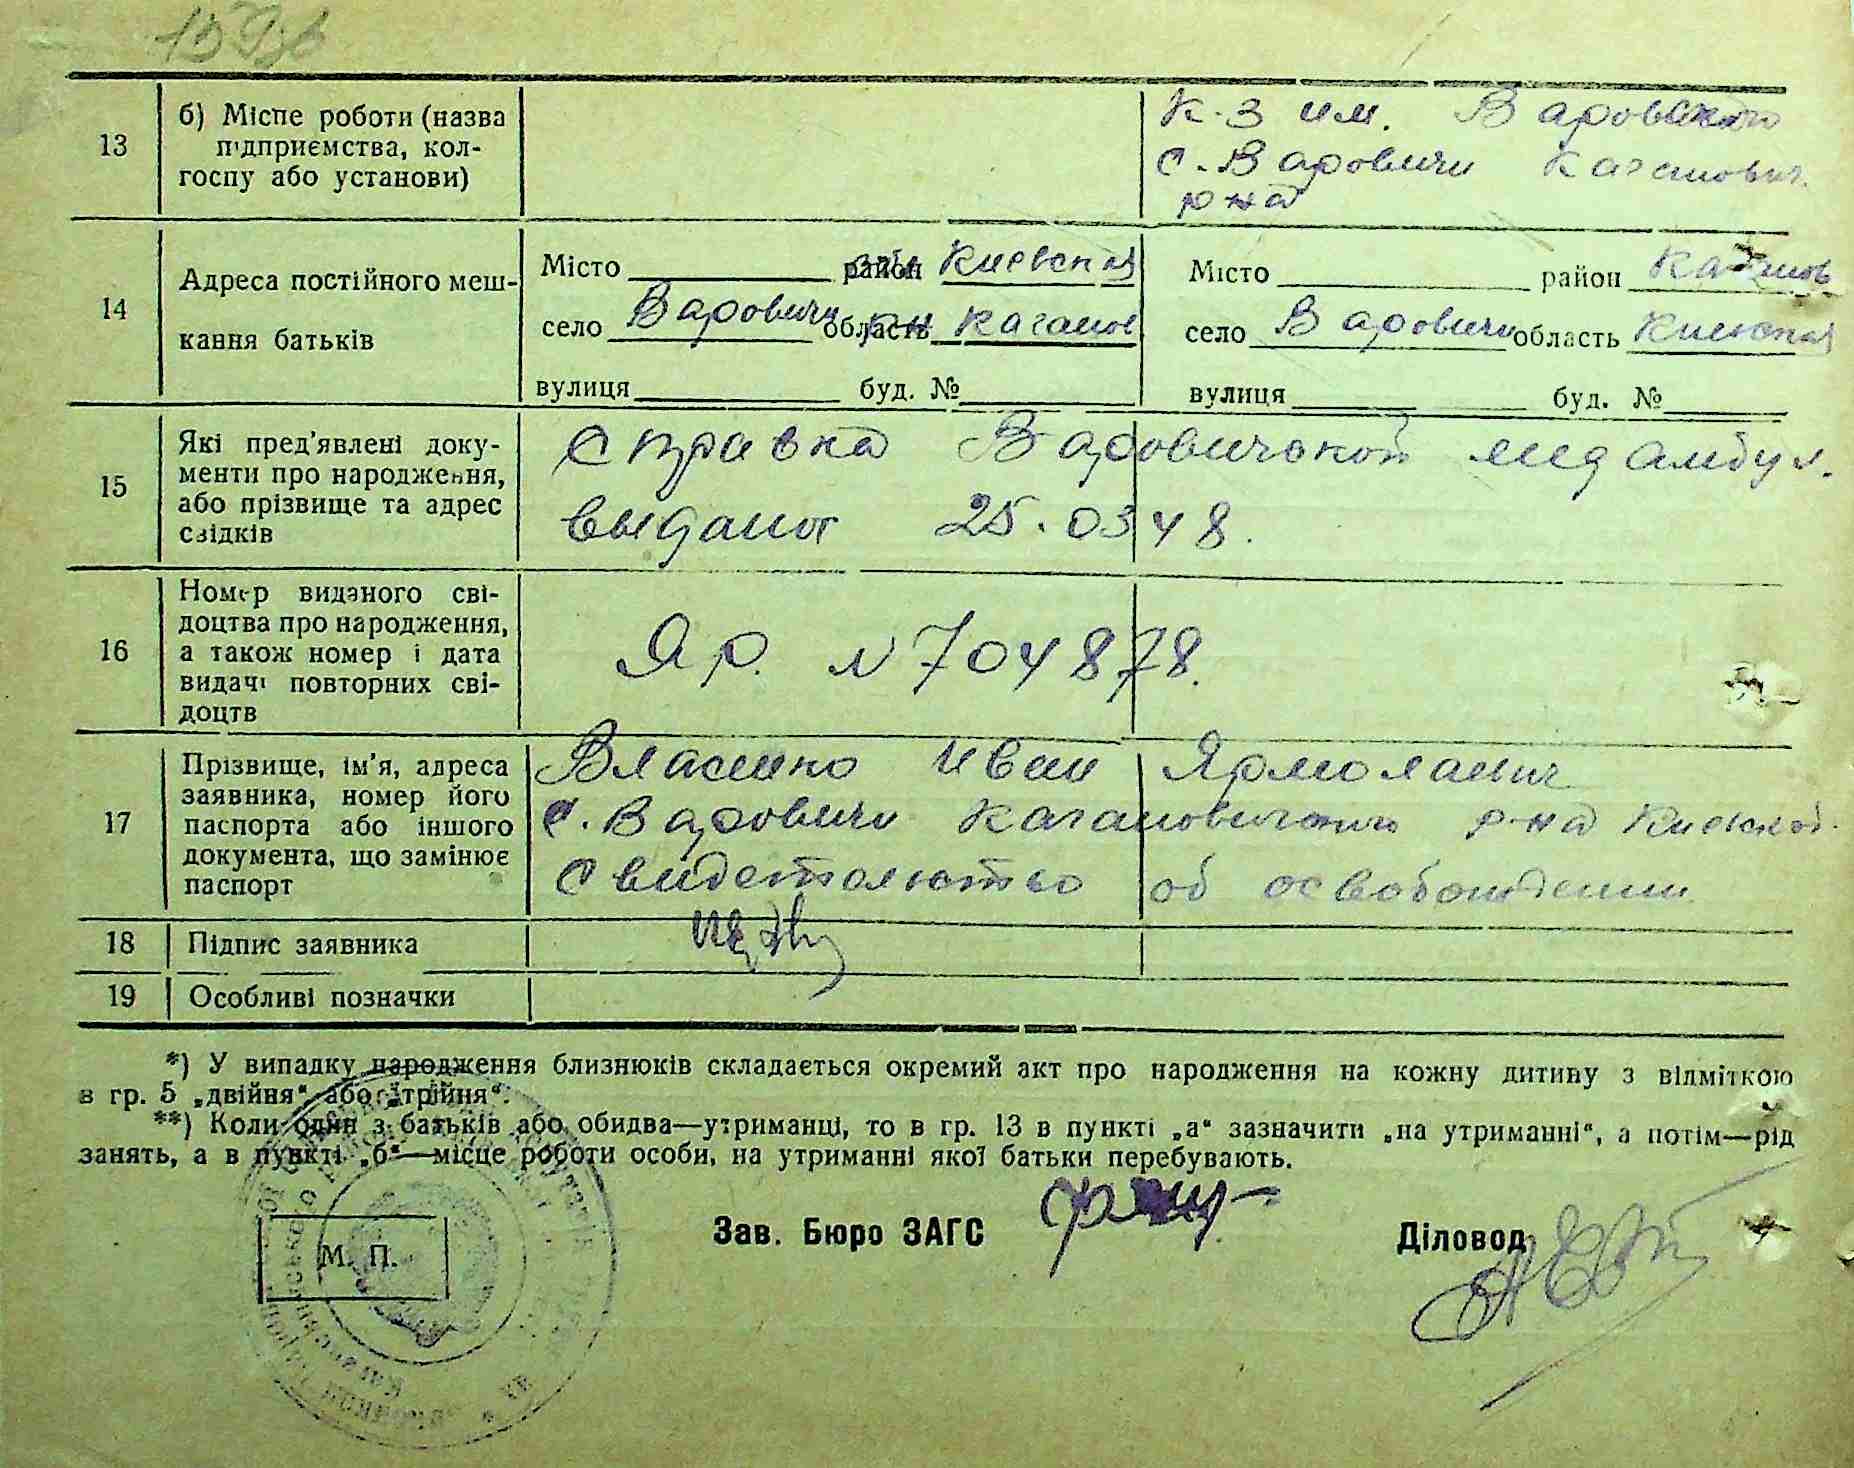 13
б) Місце роботи (назва
підприємства, кол-
госпу або установи)
К-З им.
с. Варовичи
р-на
14
Адреса постійного меш-
кання батьків
Місто район Киевская
село Варовичи область р-н Каганов
вулиця буд. №
Місто район
село Варовичи область Киевская
вулиця буд. №
15
Які пред'явлені доку-
менти про народження,
або прізвище та адрес
свідків
Справка Варовичской мед амбул.
выдана 25.03 48.
16
Номер виданого сві-
доцтва про народження,
а також номер і дата
видачі повторних сві-
доцтв
Яр. N 704878.
17
Прізвище, ім'я, адреса
заявника, номер його
паспорта або іншого
документа, що замінює
паспорт
Иван Ярмолаевич
с. Варовичи Кагановичского р-на Киевской
Свидетельство об освобождении
18
Підпис заявника
19
Особливі позначки
*) У випадку народження близнюків складається окремий акт про народження на кожну дитину з відміткою
в гр. 5 „двійня“ або „трійня“.
**) Коли один з батьків або обидва—утриманці, то в гр. 13 в пункті „а“ зазначити „на утриманні“, а потім—рід
занять, а в пункті „б“—місце роботи особи, на утриманні якої батьки перебувають.
М. П.
Зав. Бюро ЗАГС
Діловод